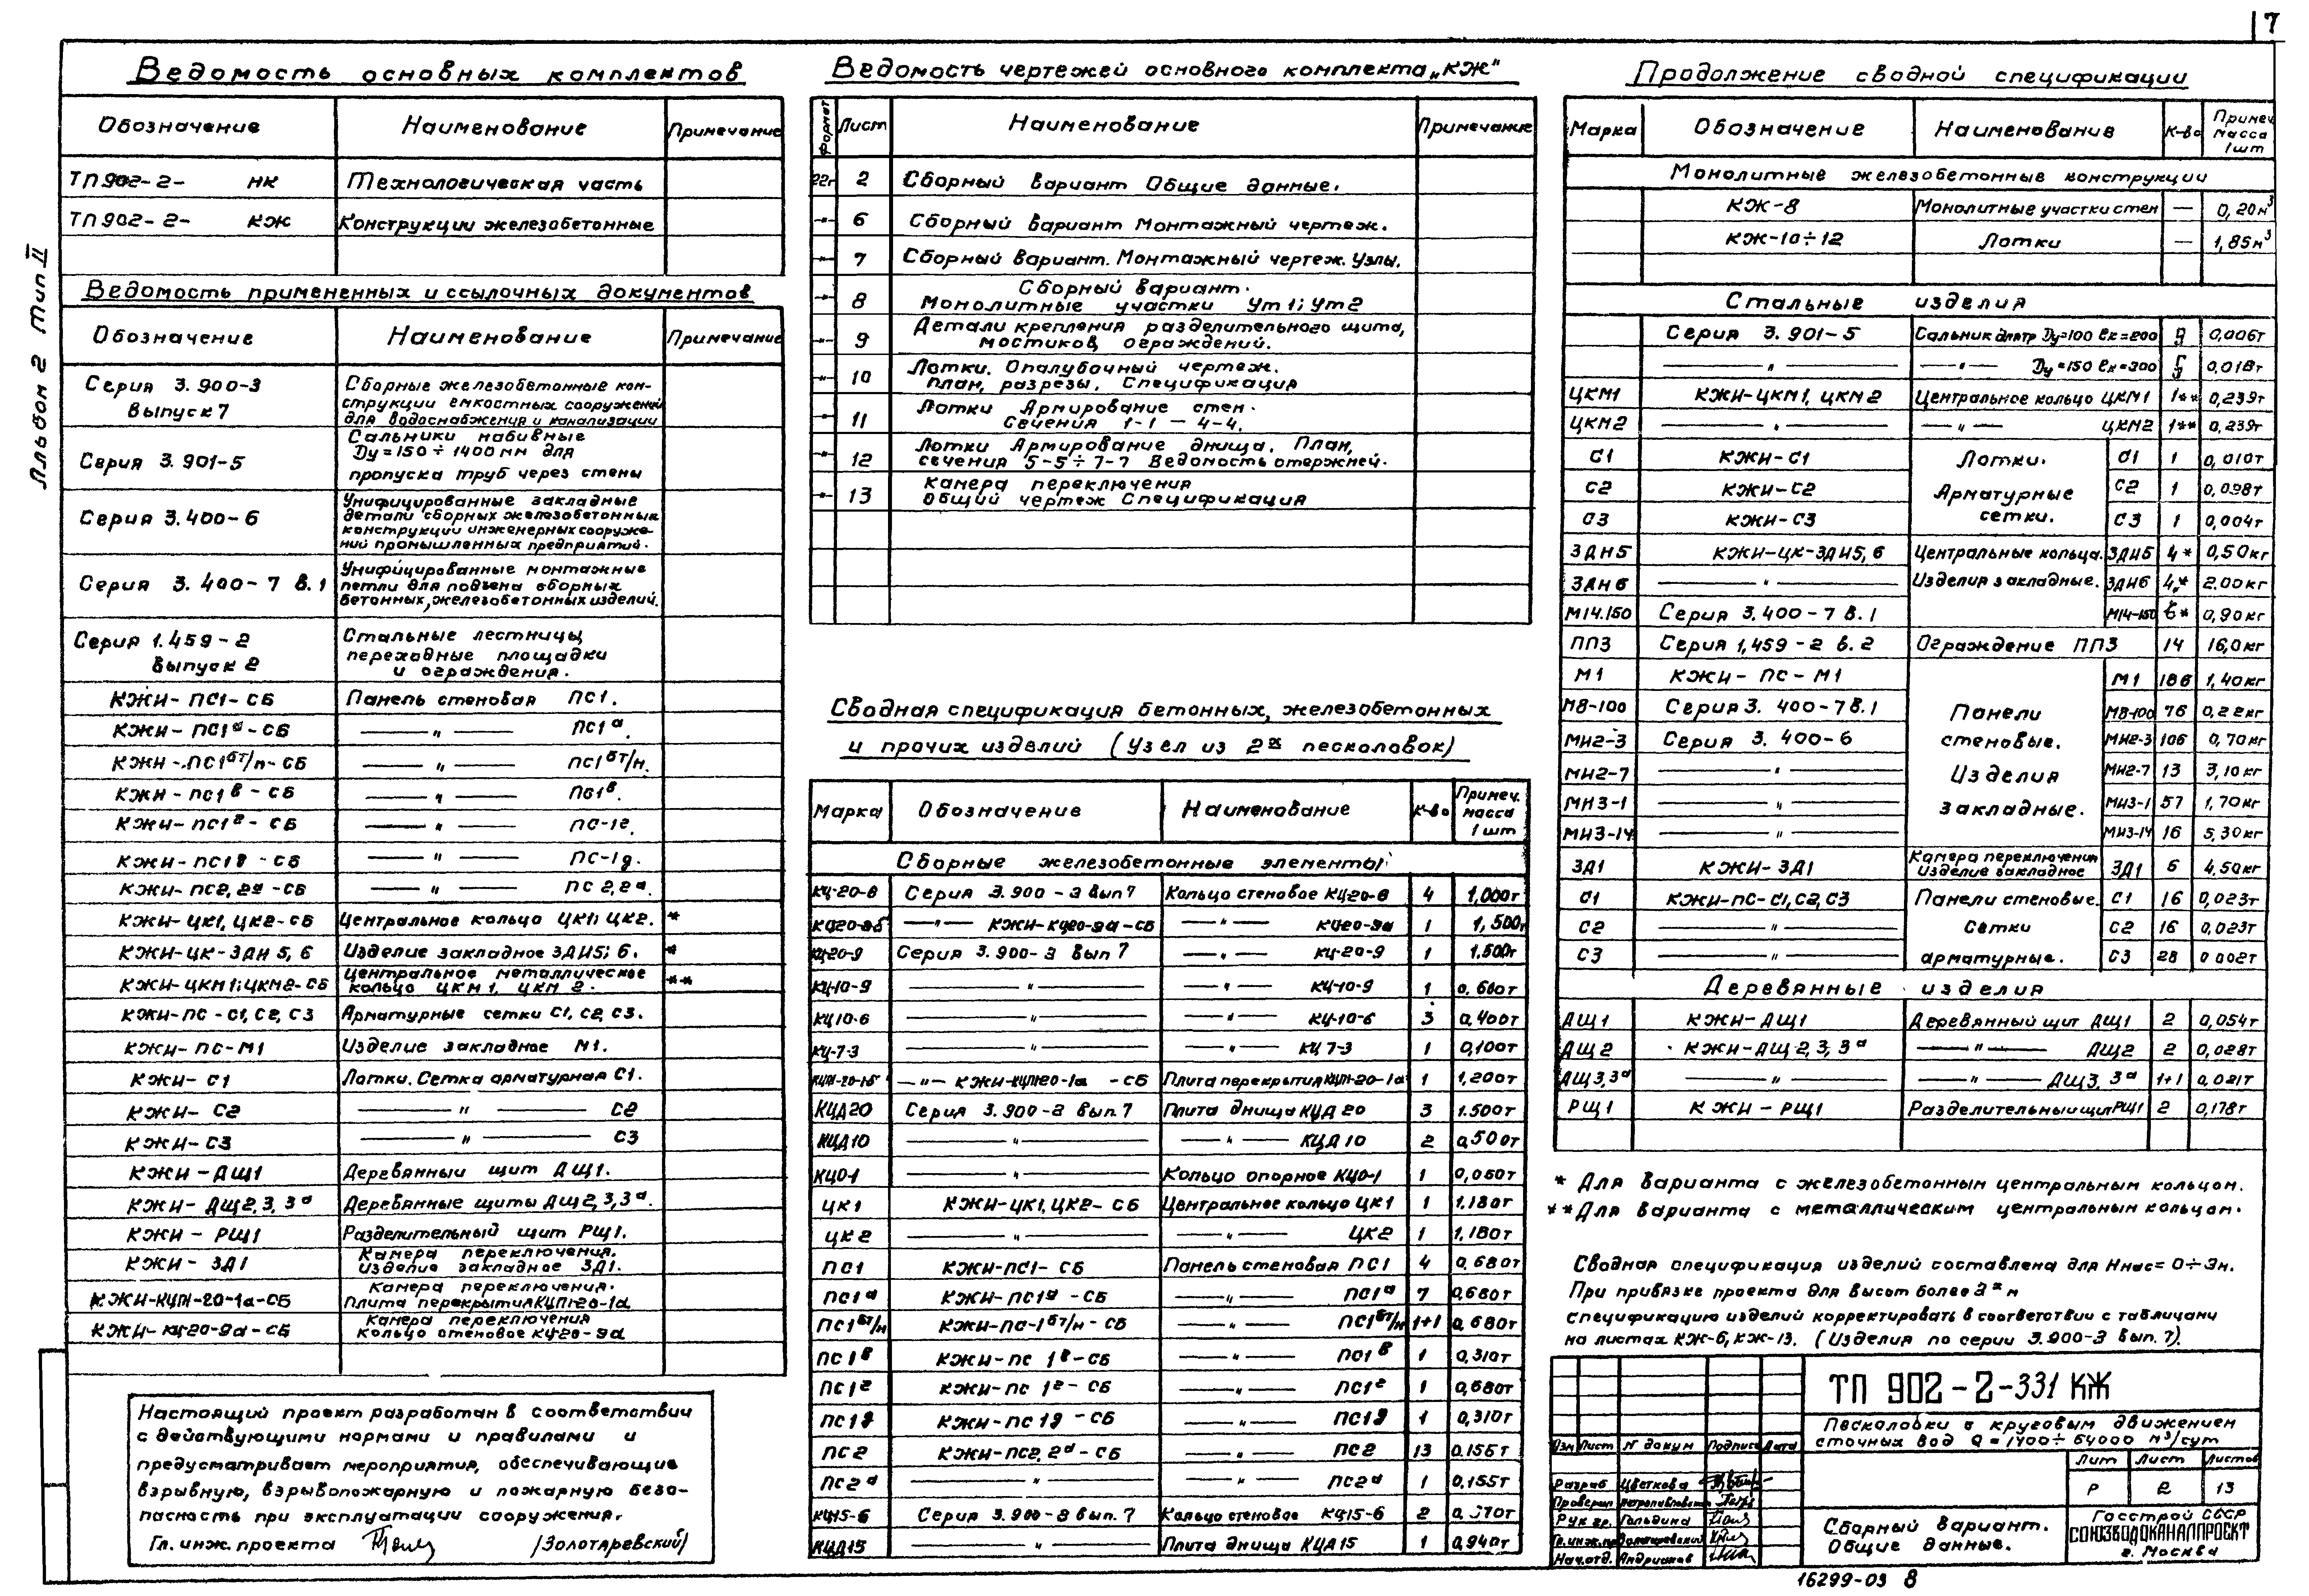 7
Альбом 2 Тип II
Ведомость основных комплектов
Обозначение Наименование Примечание
ТП902-2- НК Технологическая часть
ТП902-2- КЖ Конструкции железобетонные
Ведомость примененных и ссылочных документов
Обозначение Наименование Примечание
Серия 3.900-3 Выпуск 7 Сборные железобетонные кон-
струкции емкостных сооружений
для водоснабжения и канализации
Серия 3.901-5 Сальники набивные
Dy=150÷1400мм для
пропуска труб через стены
Серия 3.400-6 Унифицированные закладные
детали сборных железобетонных
конструкции инженерных сооруже-
ний промышленных предприятий.
Серия 3.400-7 в.1 Унифицированные монтажные
петли для подъема сборных
бетонных, железобетонных изделий.
Серия 1.459-2 Выпуск 2 Стальные лестницы,
переходные площадки
и ограждения.
КЖИ-ПС1-СБ Панель стеновая ПС1.
КЖИ-ПС1а-СБ —"— ПС1а.
КЖИ-ПС1бт/н-СБ —"— ПС1бт/н.
КЖИ-ПС1в-СБ —"— ПС1в.
КЖИ-ПС1г-СБ —"— ПС-1г.
КЖИ-ПС1д-СБ —"— ПС-1д.
КЖИ-ПС2,2а-СБ —"— ПС2,2а.
КЖИ-ЦК1,ЦК2-СБ Центральное кольцо ЦК1; ЦК2. *
КЖИ-ЦК-ЗДН5,6 Изделие закладное ЗДН5; 6. *
КЖИ-ЦКМ1;ЦКМ2-СБ Центральное металлическое
кольцо ЦКМ1, ЦКМ2. **
КЖИ-ПС-С1,С2,С3 Арматурные сетки С1, С2, С3.
КЖИ-ПС-М1 Изделие закладное М1.
КЖИ-С1 Лотки. Сетка арматурная С1.
КЖИ-С2 —"— С2
КЖИ-С3 —"— С3
КЖИ-ДЩ1 Деревянный щит ДЩ1.
КЖИ-ДЩ2,3,3а Деревянные щиты ДЩ2,3,3а.
КЖИ-РЩ1 Разделительный щит РЩ1.
КЖИ-ЗД1 Камера переключения.
Изделие закладное ЗД1.
КЖИ-КЦП1-20-1а-СБ Камера переключения.
Плита перекрытия КЦП1-20-1а
КЖИ-КЦ-20-9а-СБ Камера переключения
Кольцо стеновое КЦ-20-9а
Настоящий проект разработан в соответствии
с действующими нормами и правилами и
предусматривает мероприятия, обеспечивающие
взрывную, взрывопожарную и пожарную безо-
пасность при эксплуатации сооружения.
Гл. инж. проекта /Золотаревский/
Ведомость чертежей основного комплекта „КЖ"
Формат Лист Наименование Примечание
22г 2 Сборный вариант Общие данные.
-"- 6 Сборный вариант Монтажный чертеж.
-"- 7 Сборный вариант. Монтажный чертеж. Узлы.
-"- 8 Сборный вариант.
Монолитные участки Ут1; Ут2
-"- 9 Детали крепления разделительного щита,
мостиков, ограждений.
-"- 10 Лотки. Опалубочный чертеж.
План, разрезы. Спецификация
-"- 11 Лотки Армирование стен.
Сечения 1-1 — 4-4.
-"- 12 Лотки Армирование днища. План,
сечения 5-5÷7-7 Ведомость стержней.
-"- 13 Камера переключения
Общий чертеж Спецификация
Сводная спецификация бетонных, железобетонных
и прочих изделий (Узел из 2х песколовок)
Марка Обозначение Наименование К-во Примеч. масса 1шт
Сборные железобетонные элементы
КЦ-20-6 Серия 3.900-3 вып 7 Кольцо стеновое КЦ-20-6 4 1,000т
—"— КЖИ-КЦ20-9а-СБ —"— КЦ20-9а 1 1,500т
КЦ-20-9 Серия 3.900-3 вып 7 —"— КЦ-20-9 1 1.500т
КЦ-10-9 —"— —"— КЦ-10-9 1 0.600т
КЦ10-6 —"— —"— КЦ-10-6 3 0,400т
КЦ-7-3 —"— —"— КЦ7-3 1 0,100т
—"— КЖИ-КЦП1-20-1а -СБ Плита перекрытия КЦП1-20-1а 1 1,200т
КЦД20 Серия 3.900-3 вып.7 Плита днища КЦД20 3 1.500т
КЦД10 —"— —"— КЦД10 2 0,500т
КЦО-1 —"— Кольцо опорное КЦО-1 1 0,060т
ЦК1 КЖИ-ЦК1,ЦК2-СБ Центральное кольцо ЦК1 1 1.180т
ЦК2 —"— —"— ЦК2 1 1,180т
ПС1 КЖИ-ПС1-СБ Панель стеновая ПС1 4 0,680т
ПС1а КЖИ-ПС1а-СБ —"— ПС1а 7 0,680т
ПС1бт/н КЖИ-ПС-1бт/н-СБ —"— ПС1бт/н 1+1 0,680т
ПС1в КЖИ-ПС 1в-СБ —"— ПС1в 1 0,310т
ПС1г КЖИ-ПС 1г-СБ —"— ПС1г 1 0,680т
ПС1д КЖИ-ПС 1д-СБ —"— ПС1д 1 0,310т
ПС2 КЖИ-ПС2,2а-СБ —"— ПС2 13 0.155т
ПС2а —"— —"— ПС2а 1 0,155т
КЦ15-6 Серия 3.900-3 вып.7 Кольцо стеновое КЦ15-6 2
КЦД15 —"— Плита днища КЦД15 1 0,940т
Продолжение сводной спецификации
Марка Обозначение Наименование К-во Примеч. масса 1шт
Монолитные железобетонные конструкции
КЖ-8 Монолитные участки стен — 0,20м³
КЖ-10÷12 Лотки — 1,85м³
Стальные изделия
Серия 3.901-5 Сальник Dy=100 ек=200 0,006т
—"— —"— Dy=150 0,018т
ЦКМ1 КЖИ-ЦКМ1,ЦКМ2 Центральное кольцо ЦКМ1 1** 0,239т
ЦКМ2 —"— —"— ЦКМ2 1** 0,239т
С1 КЖИ-С1 Лотки. С1 1 0,010т
С2 КЖИ-С2 Арматурные С2 1 0,098т
С3 КЖИ-С3 сетки. С3 1 0,004т
ЗДН5 КЖИ-ЦК-ЗДН5,6 Центральные кольца. ЗДН5 4* 0,50кг
ЗДН6 —"— Изделия закладные. ЗДН6 4* 2.00кг
М14.150 Серия 3.400-7 в.1 М14-150 6* 0,90кг
ПП3 Серия 1,459-2 в.2 Ограждение ПП3 14 16,0кг
М1 КЖИ-ПС-М1 М1 186 1,40кг
М8-100 Серия 3.400-7в.1 Панели М8-100 76 0,22кг
МН2-3 Серия 3.400-6 стеновые. МН2-3 106 0,70кг
МН2-7 —"— Изделия МН2-7 13 3,10кг
МН3-1 —"— закладные. МН3-1 57 1,70кг
МН3-14 —"— МН3-14 16 5,30кг
ЗД1 КЖИ-ЗД1 Камера переключения
Изделие закладное ЗД1 6 4,50кг
С1 КЖИ-ПС-С1,С2,С3 Панели стеновые. С1 16 0,023т
С2 —"— Сетки С2 16 0,023т
С3 —"— арматурные. С3 28 0 002т
Деревянные изделия
ДЩ1 КЖИ-ДЩ1 Деревянный щит ДЩ1 2 0,054т
ДЩ2 КЖИ-ДЩ2,3,3а —"— ДЩ2 2 0,028т
ДЩ3,3а —"— —"— ДЩ3,3а 1+1 0,021т
РЩ1 КЖИ-РЩ1 Разделительный щит РЩ1 2 0,178т
* Для варианта с железобетонным центральным кольцом.
** Для варианта с металлическим центральным кольцом.
Сводная спецификация изделий составлена для Ннас=0÷3м.
При привязке проекта для высот более 3х м
спецификацию изделий корректировать в соответствии с таблицами
на листах КЖ-6, КЖ-13. (Изделия по серии 3.900-3 вып.7).
ТП 902-2-331 КЖ
Песколовки с круговым движением
сточных вод Q=1400÷64000 м³/сут
Изм Лист N докум Подпись Дата
Лит Лист Листов
Р 2 13
Разраб Цветкова
Проверил
Рук гр. Гольдина
Гл.инж.пр Золотаревский
Нач.отд. Андрианов
Сборный вариант.
Общие данные.
Госстрой СССР
СОЮЗВОДОКАНАЛПРОЕКТ
г. Москва
16299-03 8